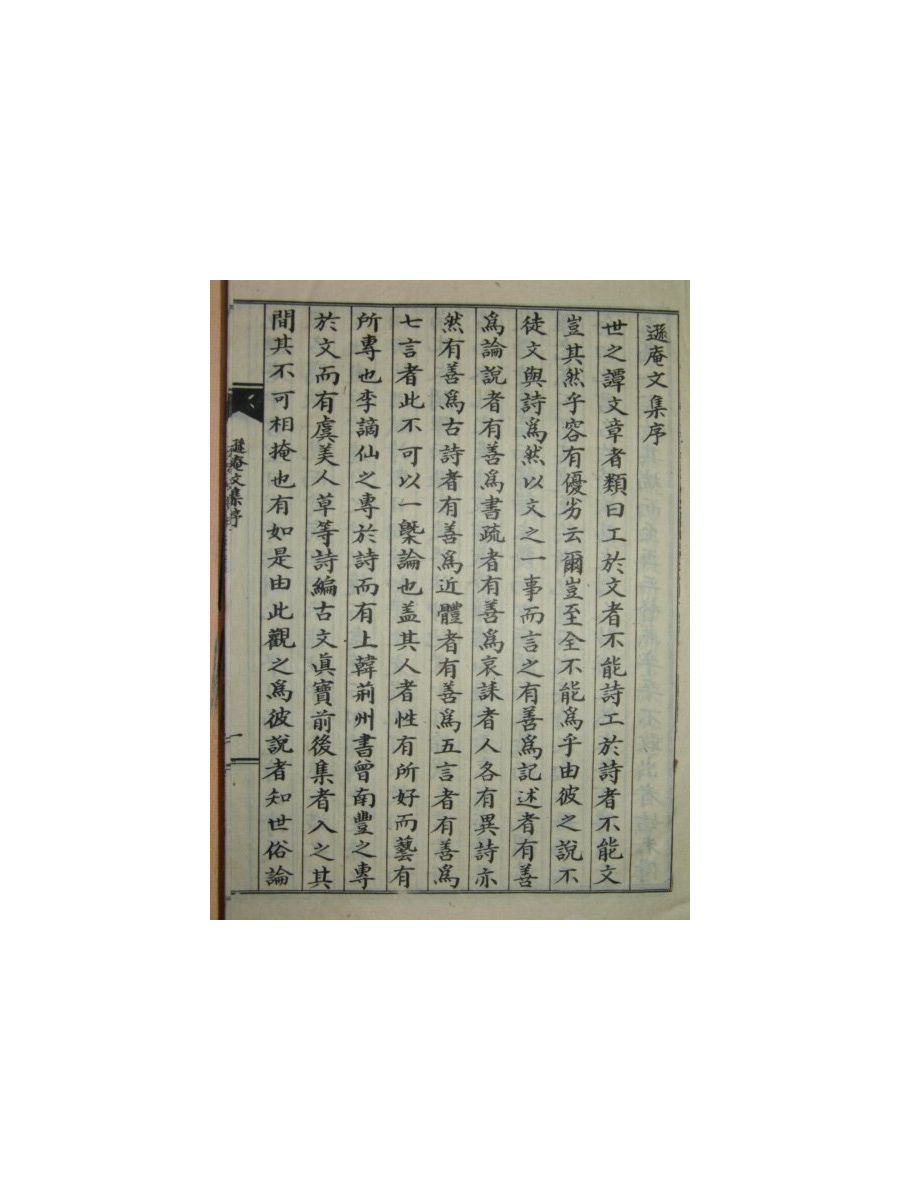 遜庵文集序
世之譚文章者類曰工於文者不能詩工於詩者不能文
豈其然乎容有優劣云爾豈至全不能爲乎由彼之說不
徒文與詩爲然以文之一事而言之有善爲記述者有善
爲論說者有善爲書疏者有善爲哀誄者人各有異詩亦
然有善爲古詩者有善爲近體者有善爲五言者有善爲
七言者此不可以一槩論也盖其人者性有所好而藝有
所專也李謫仙之專於詩而有上韓荊州書曾南豐之專
於文而有虞美人草等詩編古文眞寶前後集者入之其
間其不可相掩也有如是由此觀之爲彼說者知世俗論
遜庵文集序
一